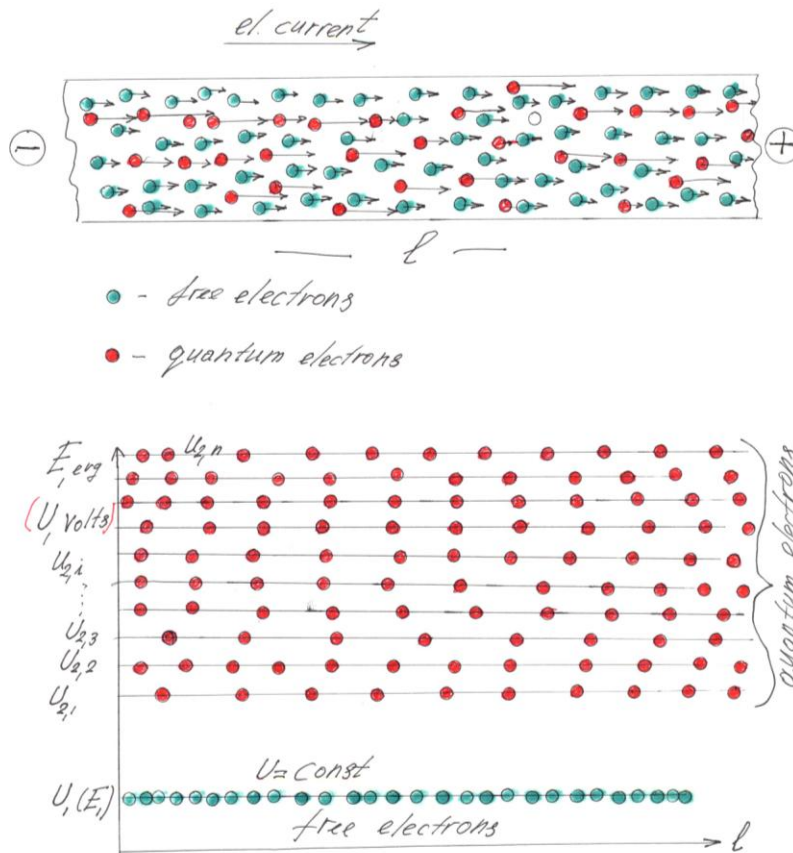 el. current
−
+
l
- free electrons
- quantum electrons
E, erg
(U, volts)
U2,n
U2,i
⋮
U2,3
U2,2
U2,1
quantum electrons
U1(E1)
U=const
free electrons
l